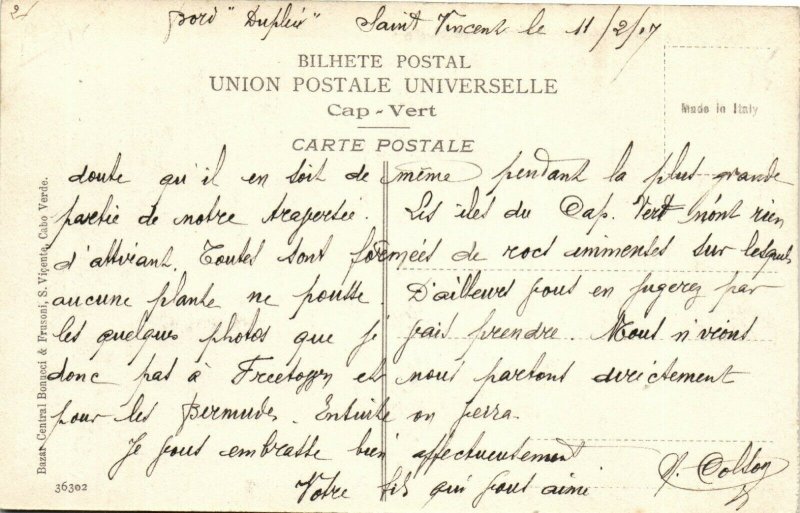 2
bord "Dupleix" Saint Vincent le 11/2/07
BILHETE POSTAL
UNION POSTALE UNIVERSELLE
Cap-Vert
CARTE POSTALE
Made in Italy
doute qu'il en soit de même pendant la plus grande
partie de notre traversée. Les îles du Cap. Vert n'ont rien
d'attirant. Toutes sont formées de rocs immenses sur lesquels
aucune plante ne pousse. D'ailleurs vous en jugerez par
les quelques photos que je fais prendre. Nous n'irons
donc pas à Freetown et nous partons directement
pour les Bermudes. Ensuite on verra.
Je vous embrasse bien affectueusement
Votre fils qui vous aime
Bazar Central Bonucci & Frusoni, S. Viçente, Cabo Verde.
36302